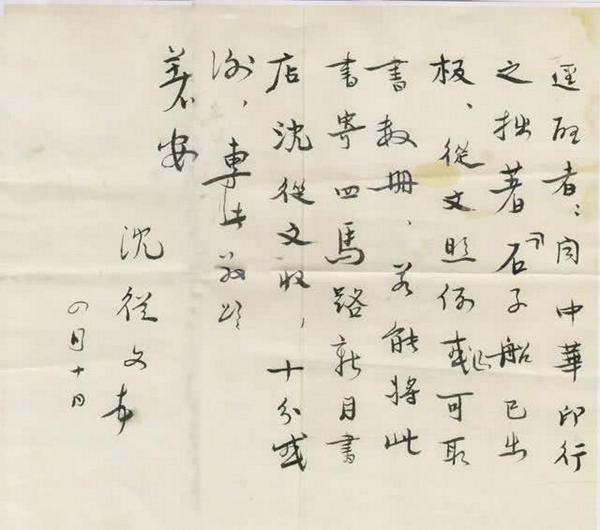 逕啟者：中華印行
之拙著『石子船』已出
板、從文照例或可取
書數册、若能將此
書寄四馬路新月書
店沈從文收，十分感
謝，專此敬頌
著安
沈從文
四月十日